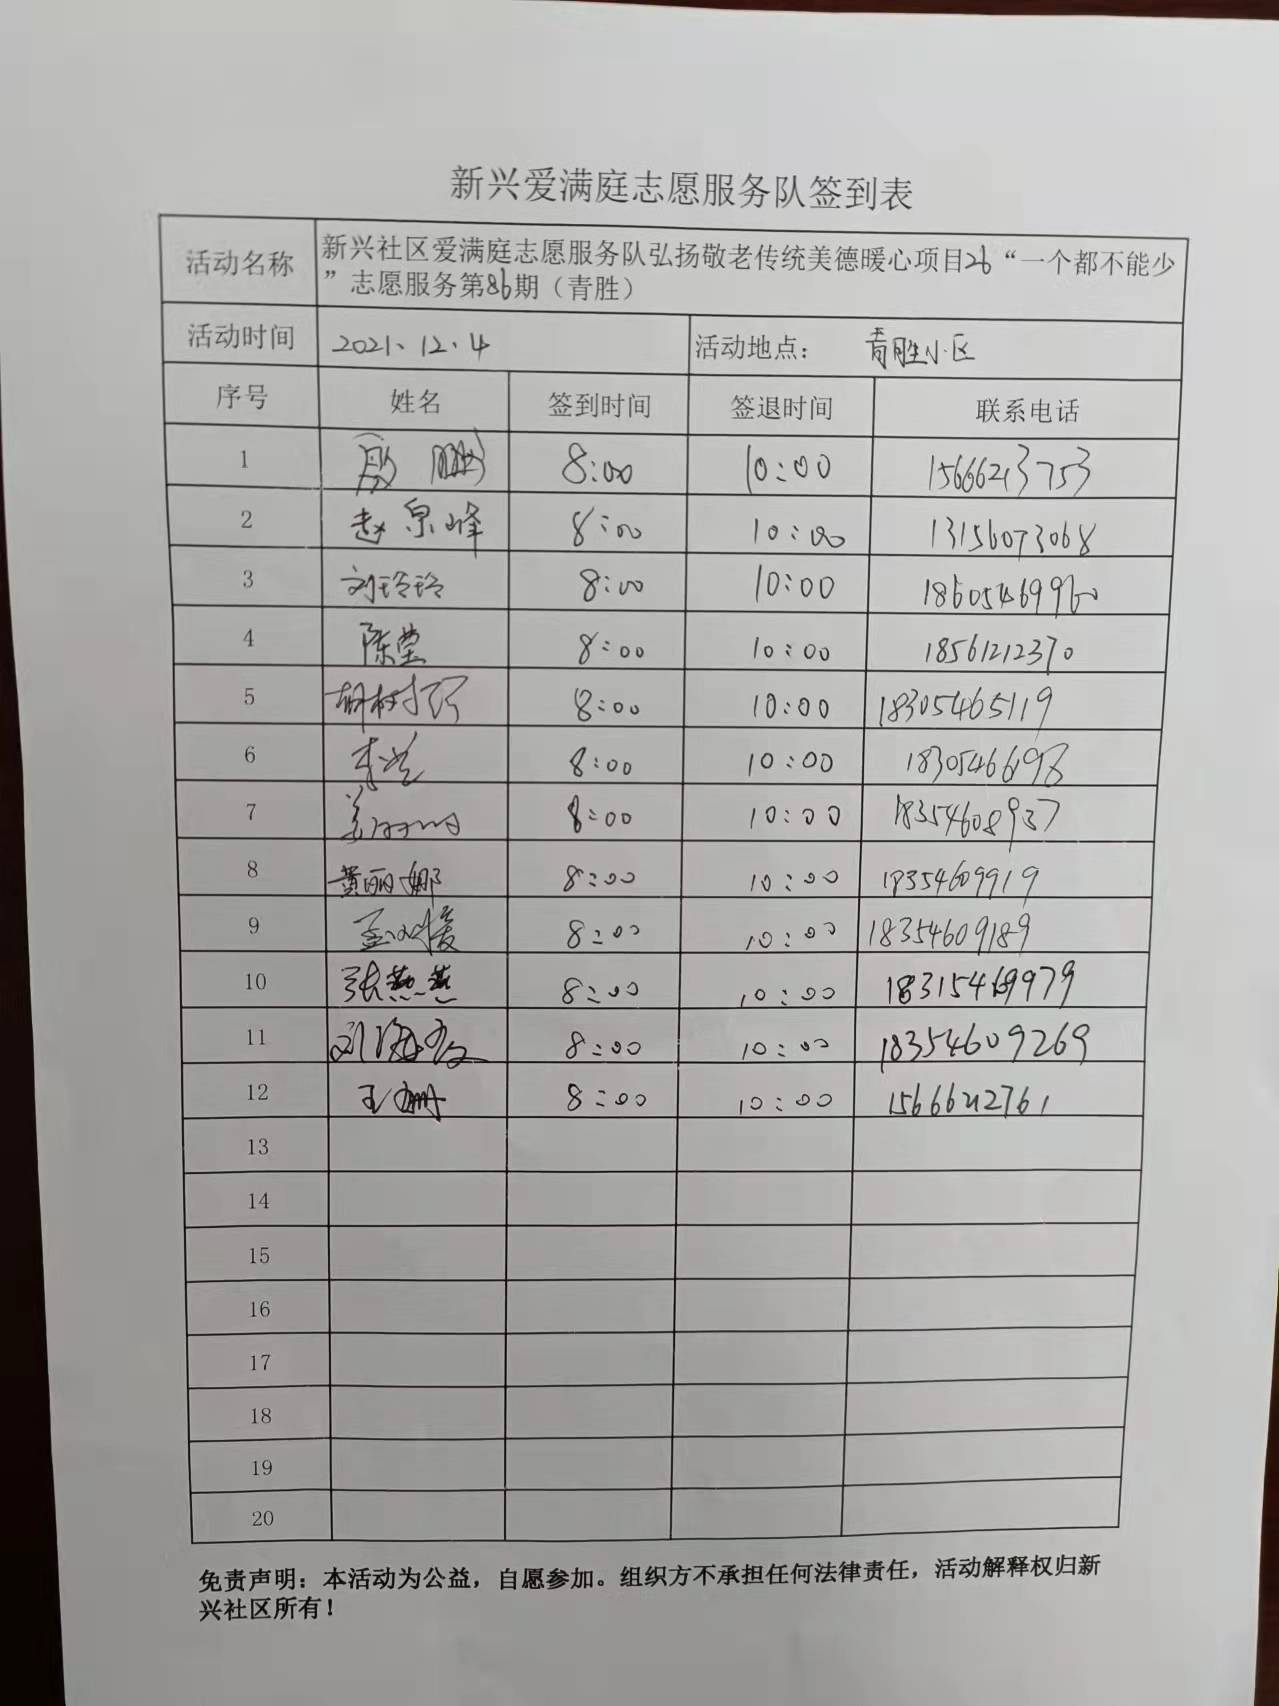 新兴爱满庭志愿服务队签到表
活动名称 新兴社区爱满庭志愿服务队弘扬敬老传统美德暖心项目26“一个都不能少
”志愿服务第86期（青胜）
活动时间 2021、12.4 活动地点： 青胜小区
序号 姓名 签到时间 签退时间 联系电话
1 8:00 10:00 15666213753
2 赵泉峰 8:00 10:00 13156073068
3 刘玲玲 8:00 10:00 18605469960
4 陈莹 8:00 10:00 18561212370
5 8:00 10:00 18305465119
6 8:00 10:00
7 8:00 10:00 18354608937
8 黄丽娜 8:00 10:00 18354609919
9 8:00 10:00 18354609189
10 张燕燕 8:00 10:00 18315469979
11 8:00 10:00 18354609269
12 王姗 8:00 10:00 15666212761
13
14
15
16
17
18
19
20
免责声明：本活动为公益，自愿参加。组织方不承担任何法律责任，活动解释权归新
兴社区所有！